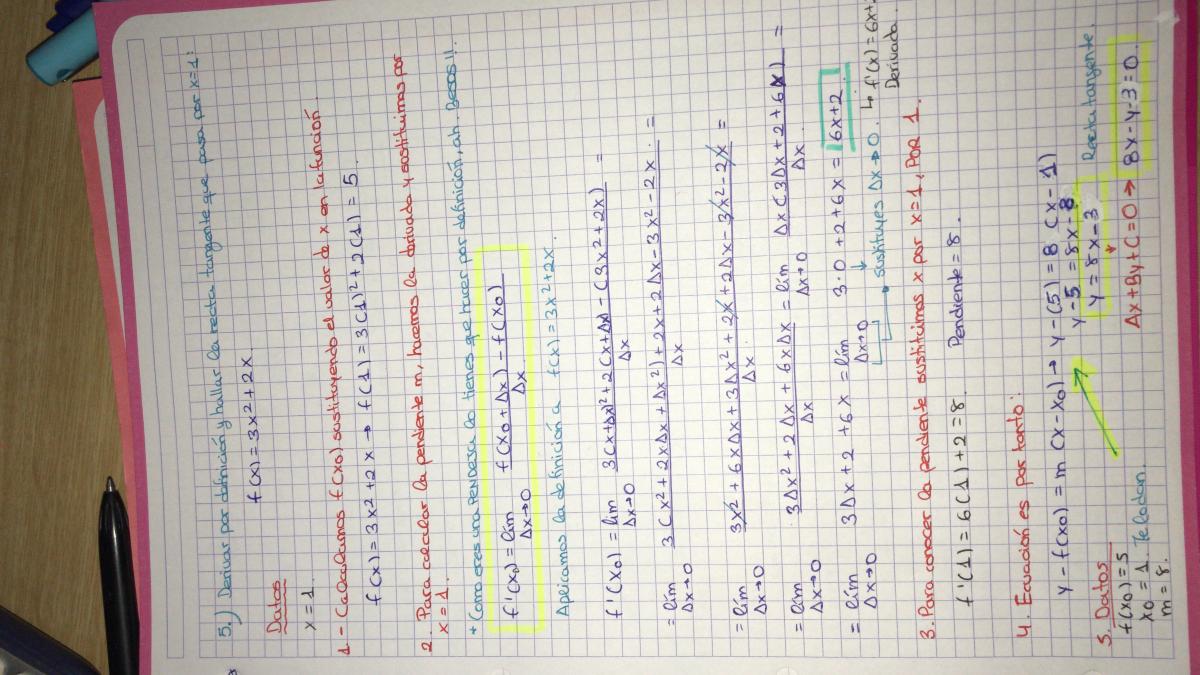 5.) Derivar por definición y hallar la recta tangente que pasa por x=1:
f(x) = 3x²+2x
Datos
x=1.
1- Calculamos f(x0) sustituyendo el valor de x en la función
f(x) = 3x²+2x → f(1) = 3(1)²+2(1) = 5.
2. Para calcular la pendiente m, hacemos la derivada y sustituimos por
x=1.
* Como eres una PENDEJA lo tienes que hacer por definición, ah. Besos!!.
f'(x0) = lím Δx→0 f(x0+Δx) - f(x0) / Δx.
Aplicamos la definición a f(x) = 3x²+2x.
f'(x0) = lím Δx→0 3(x+Δx)²+2(x+Δx) - (3x²+2x) / Δx =
= lím Δx→0 3(x²+2xΔx+Δx²)+2x+2Δx-3x²-2x / Δx. =
= lím Δx→0 3x²+6xΔx+3Δx²+2x+2Δx-3x²-2x / Δx. =
= lím Δx→0 3Δx²+2Δx+6xΔx / Δx = lím Δx→0 Δx(3Δx+2+6x) / Δx. =
= lím Δx→0 3Δx+2+6x = lím Δx→0 3·0+2+6x = 6x+2.
sustituyes Δx→0. ↳ f'(x) = 6x+2
Derivada.
3. Para conocer la pendiente sustituimos x por x=1, POR 1.
f'(1) = 6(1)+2 = 8. Pendiente = 8.
4. Ecuación es por tanto:
y - f(x0) = m(x-x0) → y-(5) = 8(x-1)
y-5 = 8x-8
y = 8x-3 Recta tangente.
Ax+By+C=0 → 8x-y-3=0.
5. Datos
f(x0) = 5
x0 = 1. Te lo dan.
m = 8.